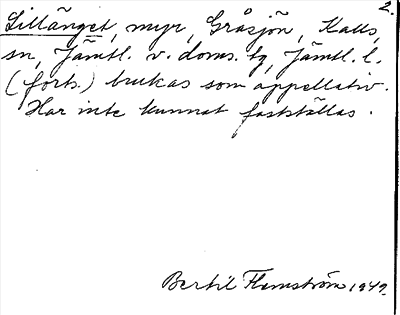 2.
Lillänget, myr, Gråsjön, Kalls,
sn, Jämtl. v. doms. tg, Jämtl. l.
(forts.) brukas som appellativ.
Har inte kunnat fastställas.
Bertil Flemström 1949.